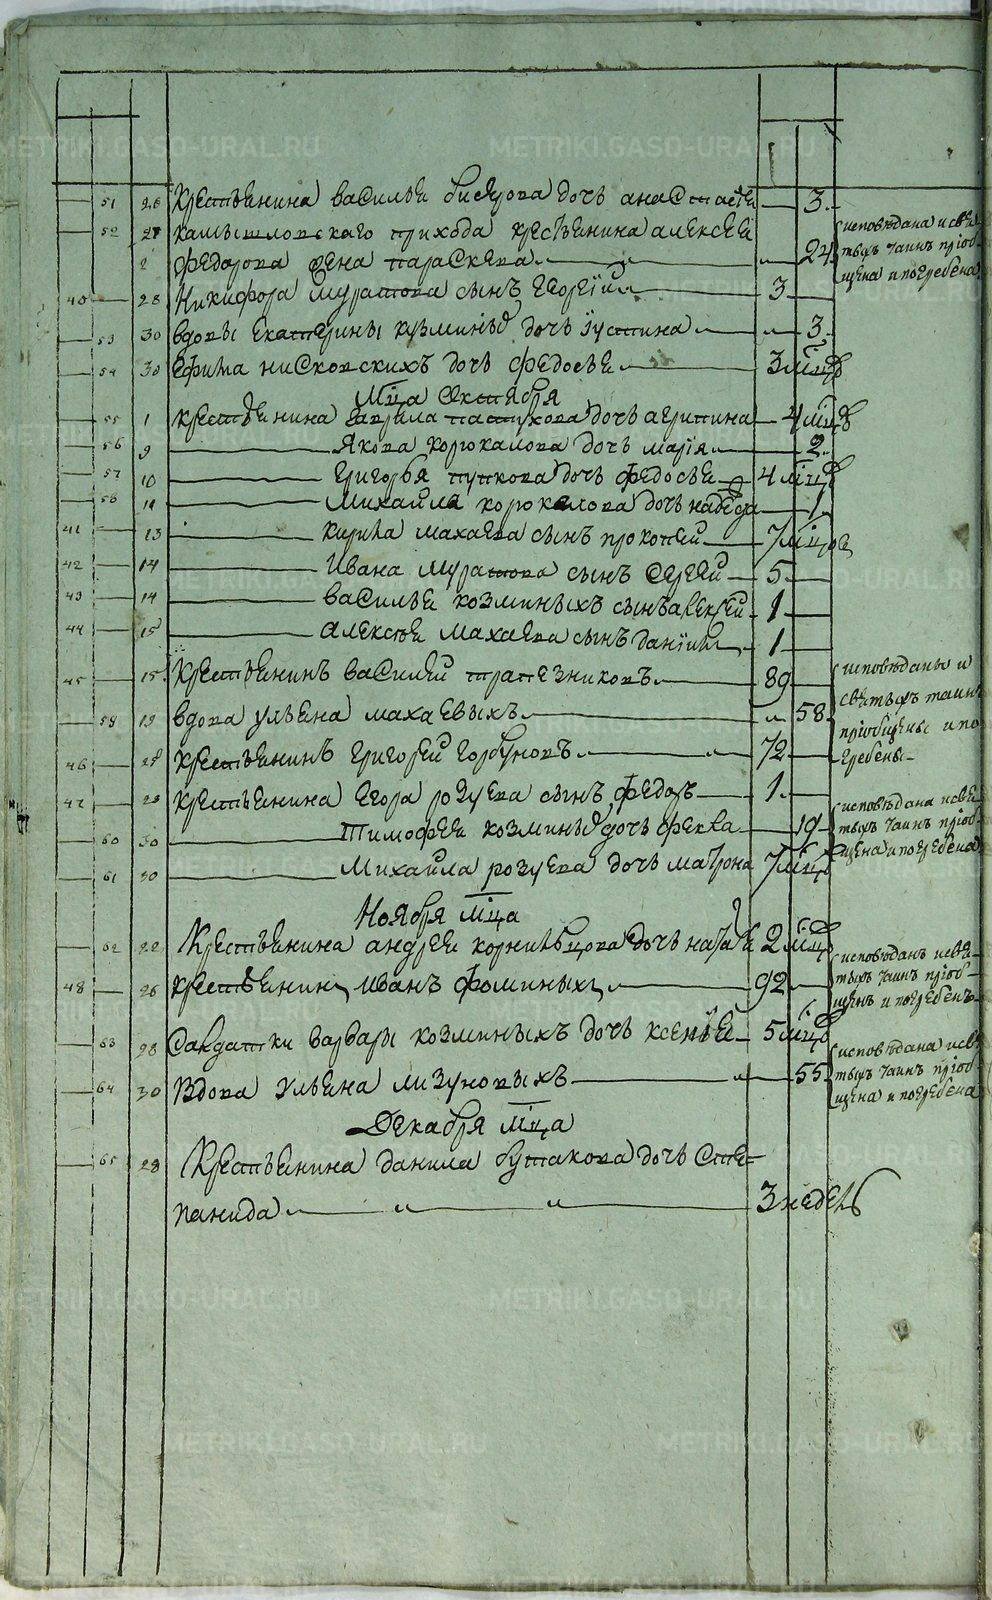 51 26 Крестьянина василья бисерова дочь анастасiя 3
52 27 камышловскаго прихода крестьянина алексея
федорова жена параскева 24 исповѣдана и свя
тыхъ таинъ прiоб
щена и погребена
40 28 Никифора Муратова сынъ Георгiй 3
53 30 вдовы екатерины козминых дочь iустина 3
54 30 ефима нисковскихъ дочь федосья 3 мцъ
Мца Октября
55 1 крестьянина гаврила пастухова дочь агрипина 4 мцъ
56 9 Якова корокалова дочь марiя 2
57 10 Григорья пупкова дочь федосья 4 мцъ
58 11 Михаила корокалова дочь надежда 1
41 13 кирила махаева сынъ прокопей 7 мцовъ
42 14 Ивана Муратова сынъ Сергей 5
43 14 василья козминыхъ сынъ алексей 1
44 15 алексея махаева сынъ данiилъ 1
45 15 Крестьянинъ василей трапезниковъ 89 исповѣданы и
святыхъ таинъ
59 19 вдова ульяна махаевыхъ 58 прiобщены и по
гребены
46 25 крестьянинъ Григорей Горбуновъ 72
47 29 крестьянина Егора розуева сынъ федоръ 1
60 30 Тимофея козминых дочь фекла 19 исповѣдана и свя
тыхъ таинъ прiоб
щена и погребена
61 30 Михаила розуева дочь матрона 7 мцъ
Ноября мца
62 22 Крестьянина андрея корнильцова дочь наталья 2 мцъ
48 26 крестьянинъ иванъ фоминыхъ 92 исповѣданъ и свя
тыхъ таинъ прiоб
щенъ и погребенъ
63 28 Салдатки варвары козминыхъ дочь ксенiя 5 мцъ
64 30 Вдова ульяна мизуновыхъ 55 исповѣдана и свя
тыхъ таинъ прiоб
щена и погребена
Декабря мца
65 28 Крестьянина данила бутакова дочь Сте
панида 3 недель
METRIKI.GASO-URAL.RU